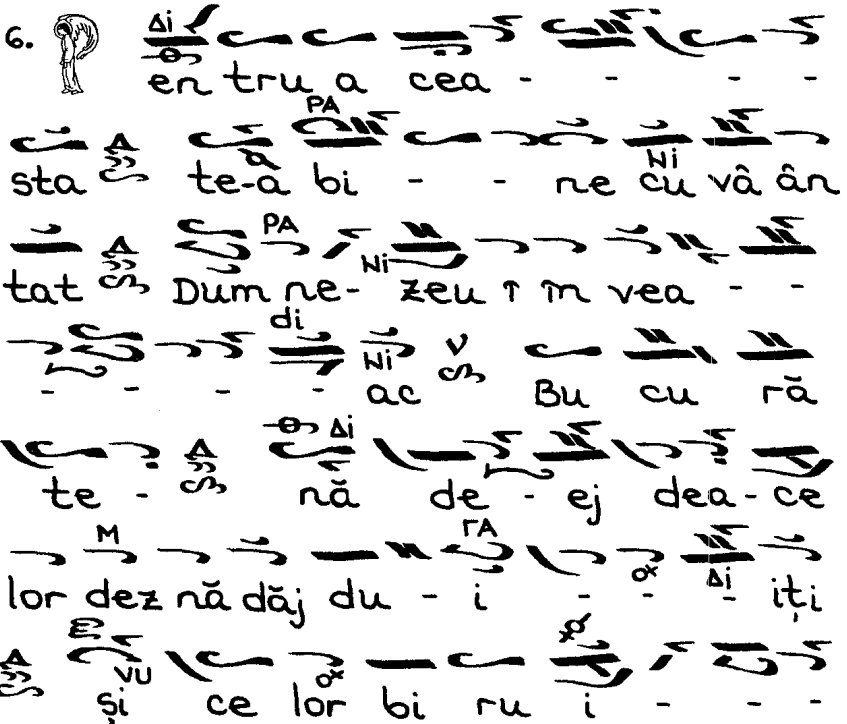 6. Δi
en tru a cea - - - -
PA
sta te-a bi - - ne cu vâ ân
Ni
PA
Ni
tat Dum ne- zeu îm vea - -
di
Ni
- - - - ac Bu cu ră
Δi
te - nă de - ej dea-ce
M ΓA
Δi
lor dez nă dăj du - i - - - iți
VU
și ce lor bi ru i - - -